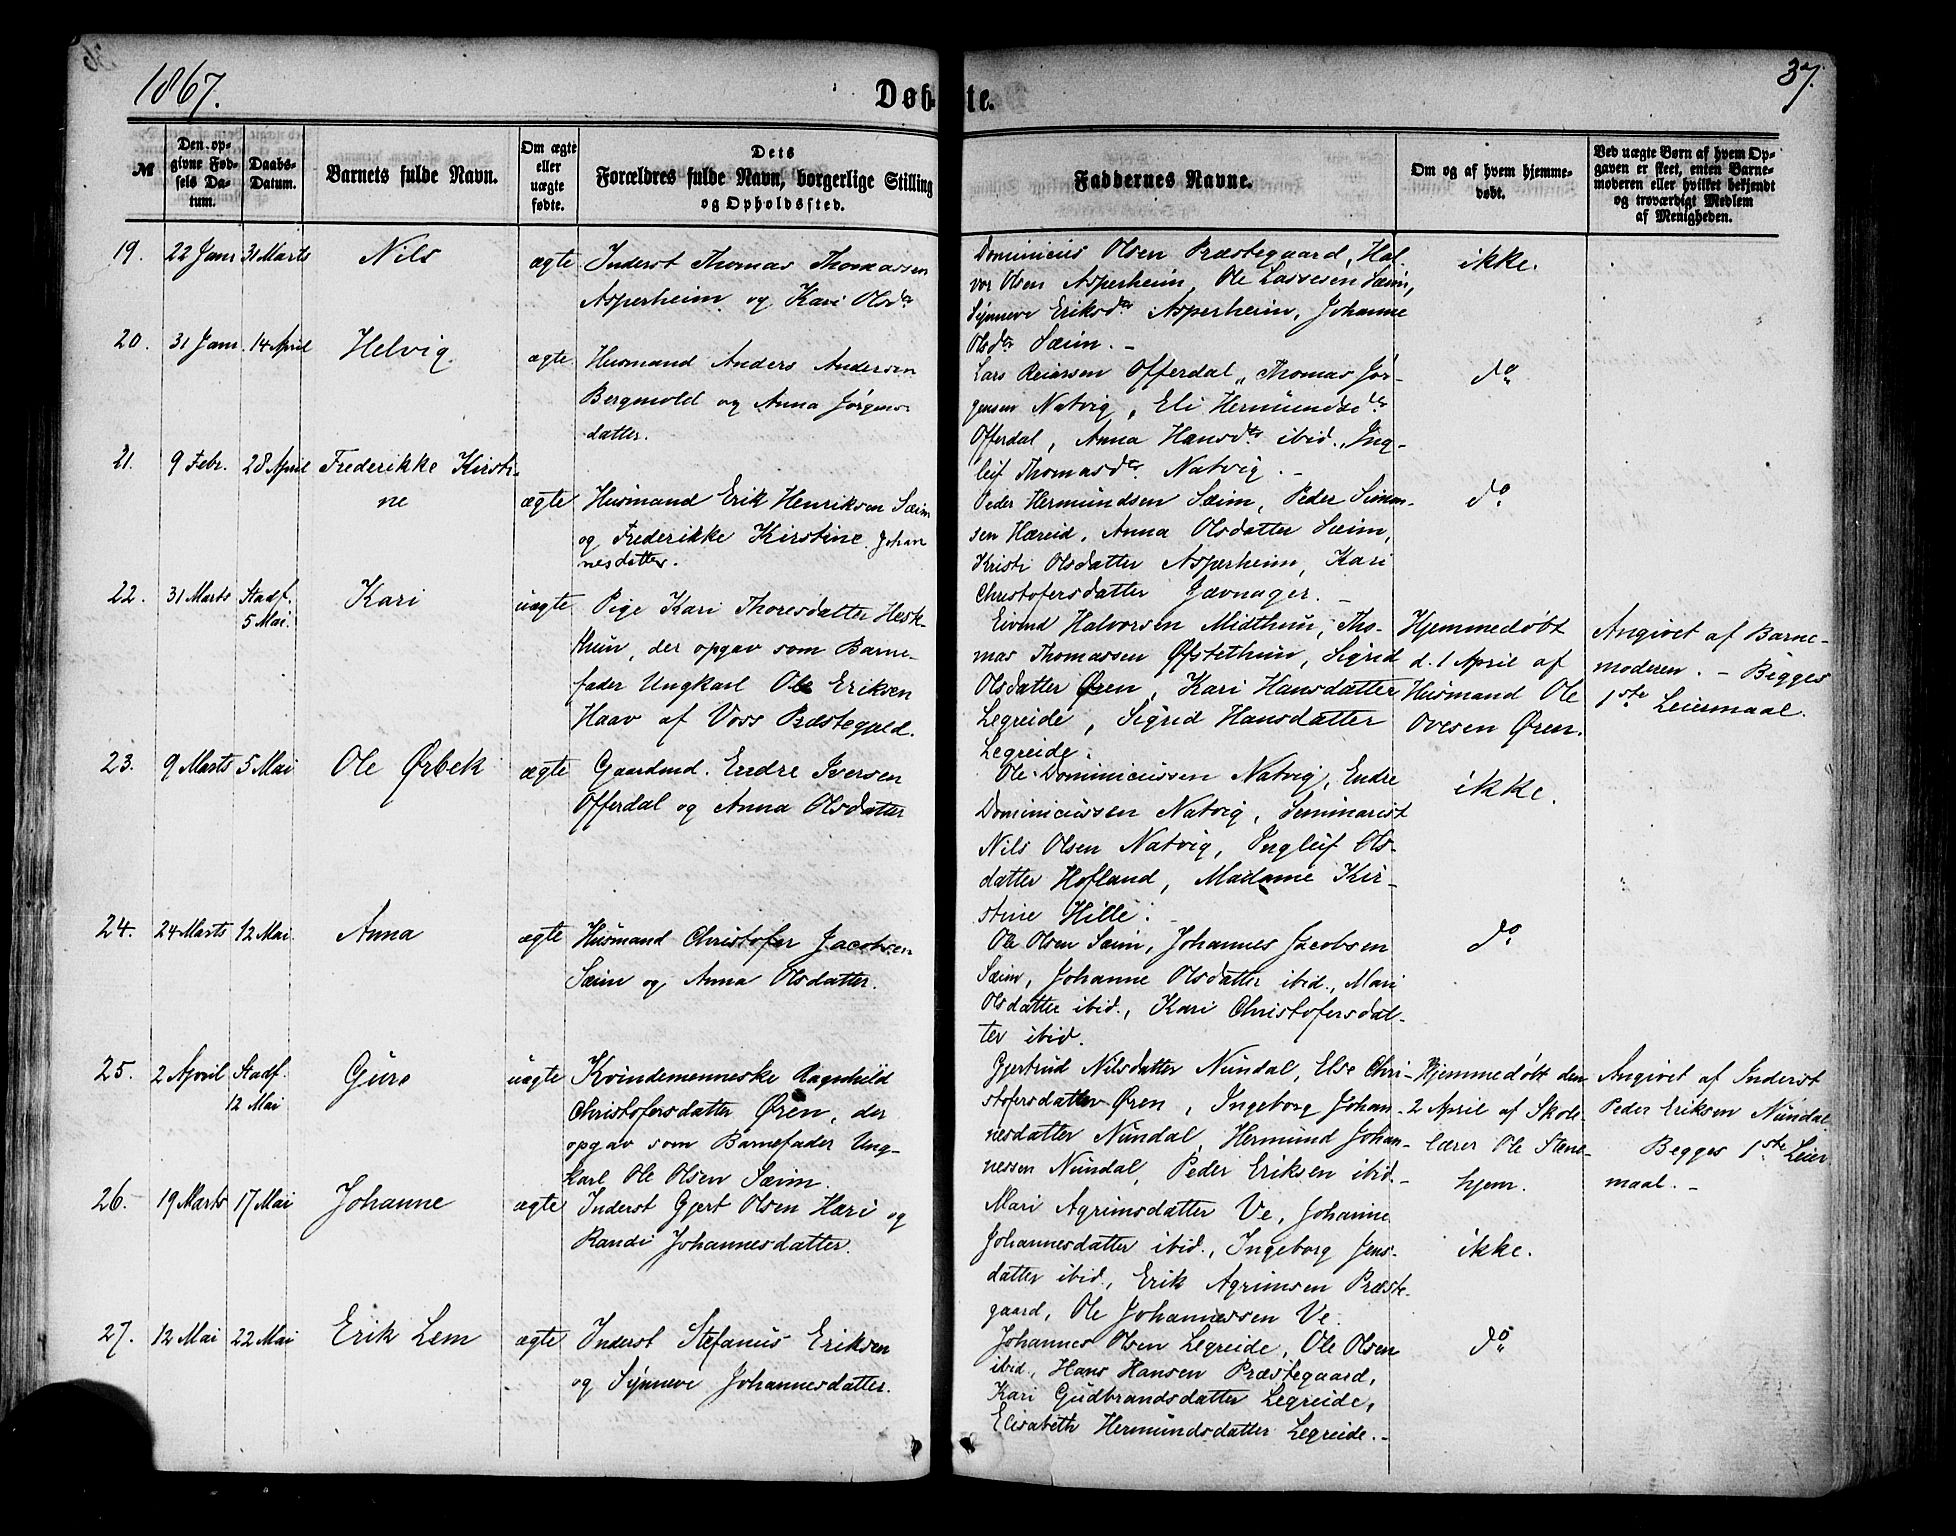 1867.
Døbte.
37.
№
Den opgivne Fødsels Datum.
Daabs-Datum.
Barnets fulde Navn.
Om ægte eller uægte fødte.
Dets Forældres fulde Navn, borgerlige Stilling og Opholdssted.
Faddernes Navne.
Om og af hvem hjemmedøbt.
Ved uægte Børn af hvem Opgaven er skeet, enten Barnemoderen eller hvilket bekjendt og troværdigt Medlem af Menigheden.
19. 22 Janr 31 Marts Nils ægte
Inderst Thomas Thomassen
Asperheim og Kari Olsdr
Dominicus Olsen Præstegaard, Hal-
vor Olsen Asperheim, Ole Lassesen Sæim,
Synneve Eriksdr Asperheim, Johanne
Olsdr Sæim. –
ikke.
20. 31 Janr. 14 April Helvig ægte
Husmand Anders Andersen
Bergmold og Anna Jørgens-
datter.
Lars Reiarsen Offerdal, Thomas Jør-
gensen Natvig, Eli Hermundsdr
Offerdal, Anna Hansdr ibid., Ing-
leif Thomasdr Natvig. –
do
21. 9 Febr. 28 April Frederikke Kirsti-
ne
ægte
Husmand Erik Henriksen Sæim
og Frederikke Kirstine Johan
nesdatter.
Peder Hermundsen Sæim, Peder Simon-
sen Hæreid, Anna Olsdatter Sæim,
Kristi Olsdatter Asperheim, Kari
Christofersdatter Jævnager. –
do
22. 31 Marts Stadf.
5 Mai.
Kari uægte
Pige Kari Thoresdatter Hesk-
thun, der opgav som Barne-
fader Ungkarl Ole Eriksen
Haav af Voss Præstegjeld.
Eivind Halvorsen Midthun, Tho-
mas Thomassen Øfstethun, Sigrid
Olsdatter Øren, Kari Hansdatter
Legreide, Sigrid Hansdatter
Legreide.
Hjemmedøbt
d. 1 April af
Husmand Ole
Ovesen Øren.
Angivet af Barne-
moderen. – Begges
1ste Leiermaal.
23. 9 Marts 5 Mai Ole Ørbek ægte
Gaardmd. Endre Iversen
Offerdal og Anna Olsdatter
Ole Dominicussen Natvig, Endre
Dominicussen Natvig, Seminarist
Nils Olsen Natvig, Ingleif Ols-
datter Hofland, Madame Kir-
stine Hille. –
ikke.
24. 24 Marts 12 Mai. Anna ægte
Husmand Christofer Jacobsen
Sæim og Anna Olsdatter.
Ole Olsen Sæim, Johannes Jacobsen
Sæim, Johanne Olsdatter ibid., Mari
Olsdatter ibid., Kari Christofersdat-
ter ibid.
do
25. 2 April Stadf.
12 Mai
Guro uægte
Kvindemenneske Ragnhild
Christofersdatter Øren, der
opgav som Barnefader Ung-
karl Ole Olsen Sæim.
Gjertrud Nilsdatter Nundal, Else Chri-
stofersdatter Øren, Ingeborg Johan-
nesdatter Nundal, Hermund Johan-
nessen Nundal, Peder Eriksen ibid. –
Hjemmedøbt den
2 April af Skole-
lærer Ole Stene-
hjem.
Angivet af Inderst
Peder Eriksen Nundal
Begges 1ste Leier
maal. –
26. 19 Marts 17 Mai Johanne ægte
Inderst Gjert Olsen Hæri og
Randi Johannesdatter.
Mari Agrimsdatter Ve, Johanne
Johannesdatter ibid., Ingeborg Jens-
datter ibid., Erik Agrimsen Præste-
gaard, Ole Johannessen Ve.
ikke.
27. 12 Mai 22 Mai Erik Lem ægte
Inderst Stefanus Eriksen
og Synneve Johannesdatter.
Johannes Olsen Legreide, Ole Olsen
ibid., Hans Hansen Præstegaard,
Kari Gudbrandsdatter Legreide,
Elisabeth Hermundsdatter Legreide. –
do